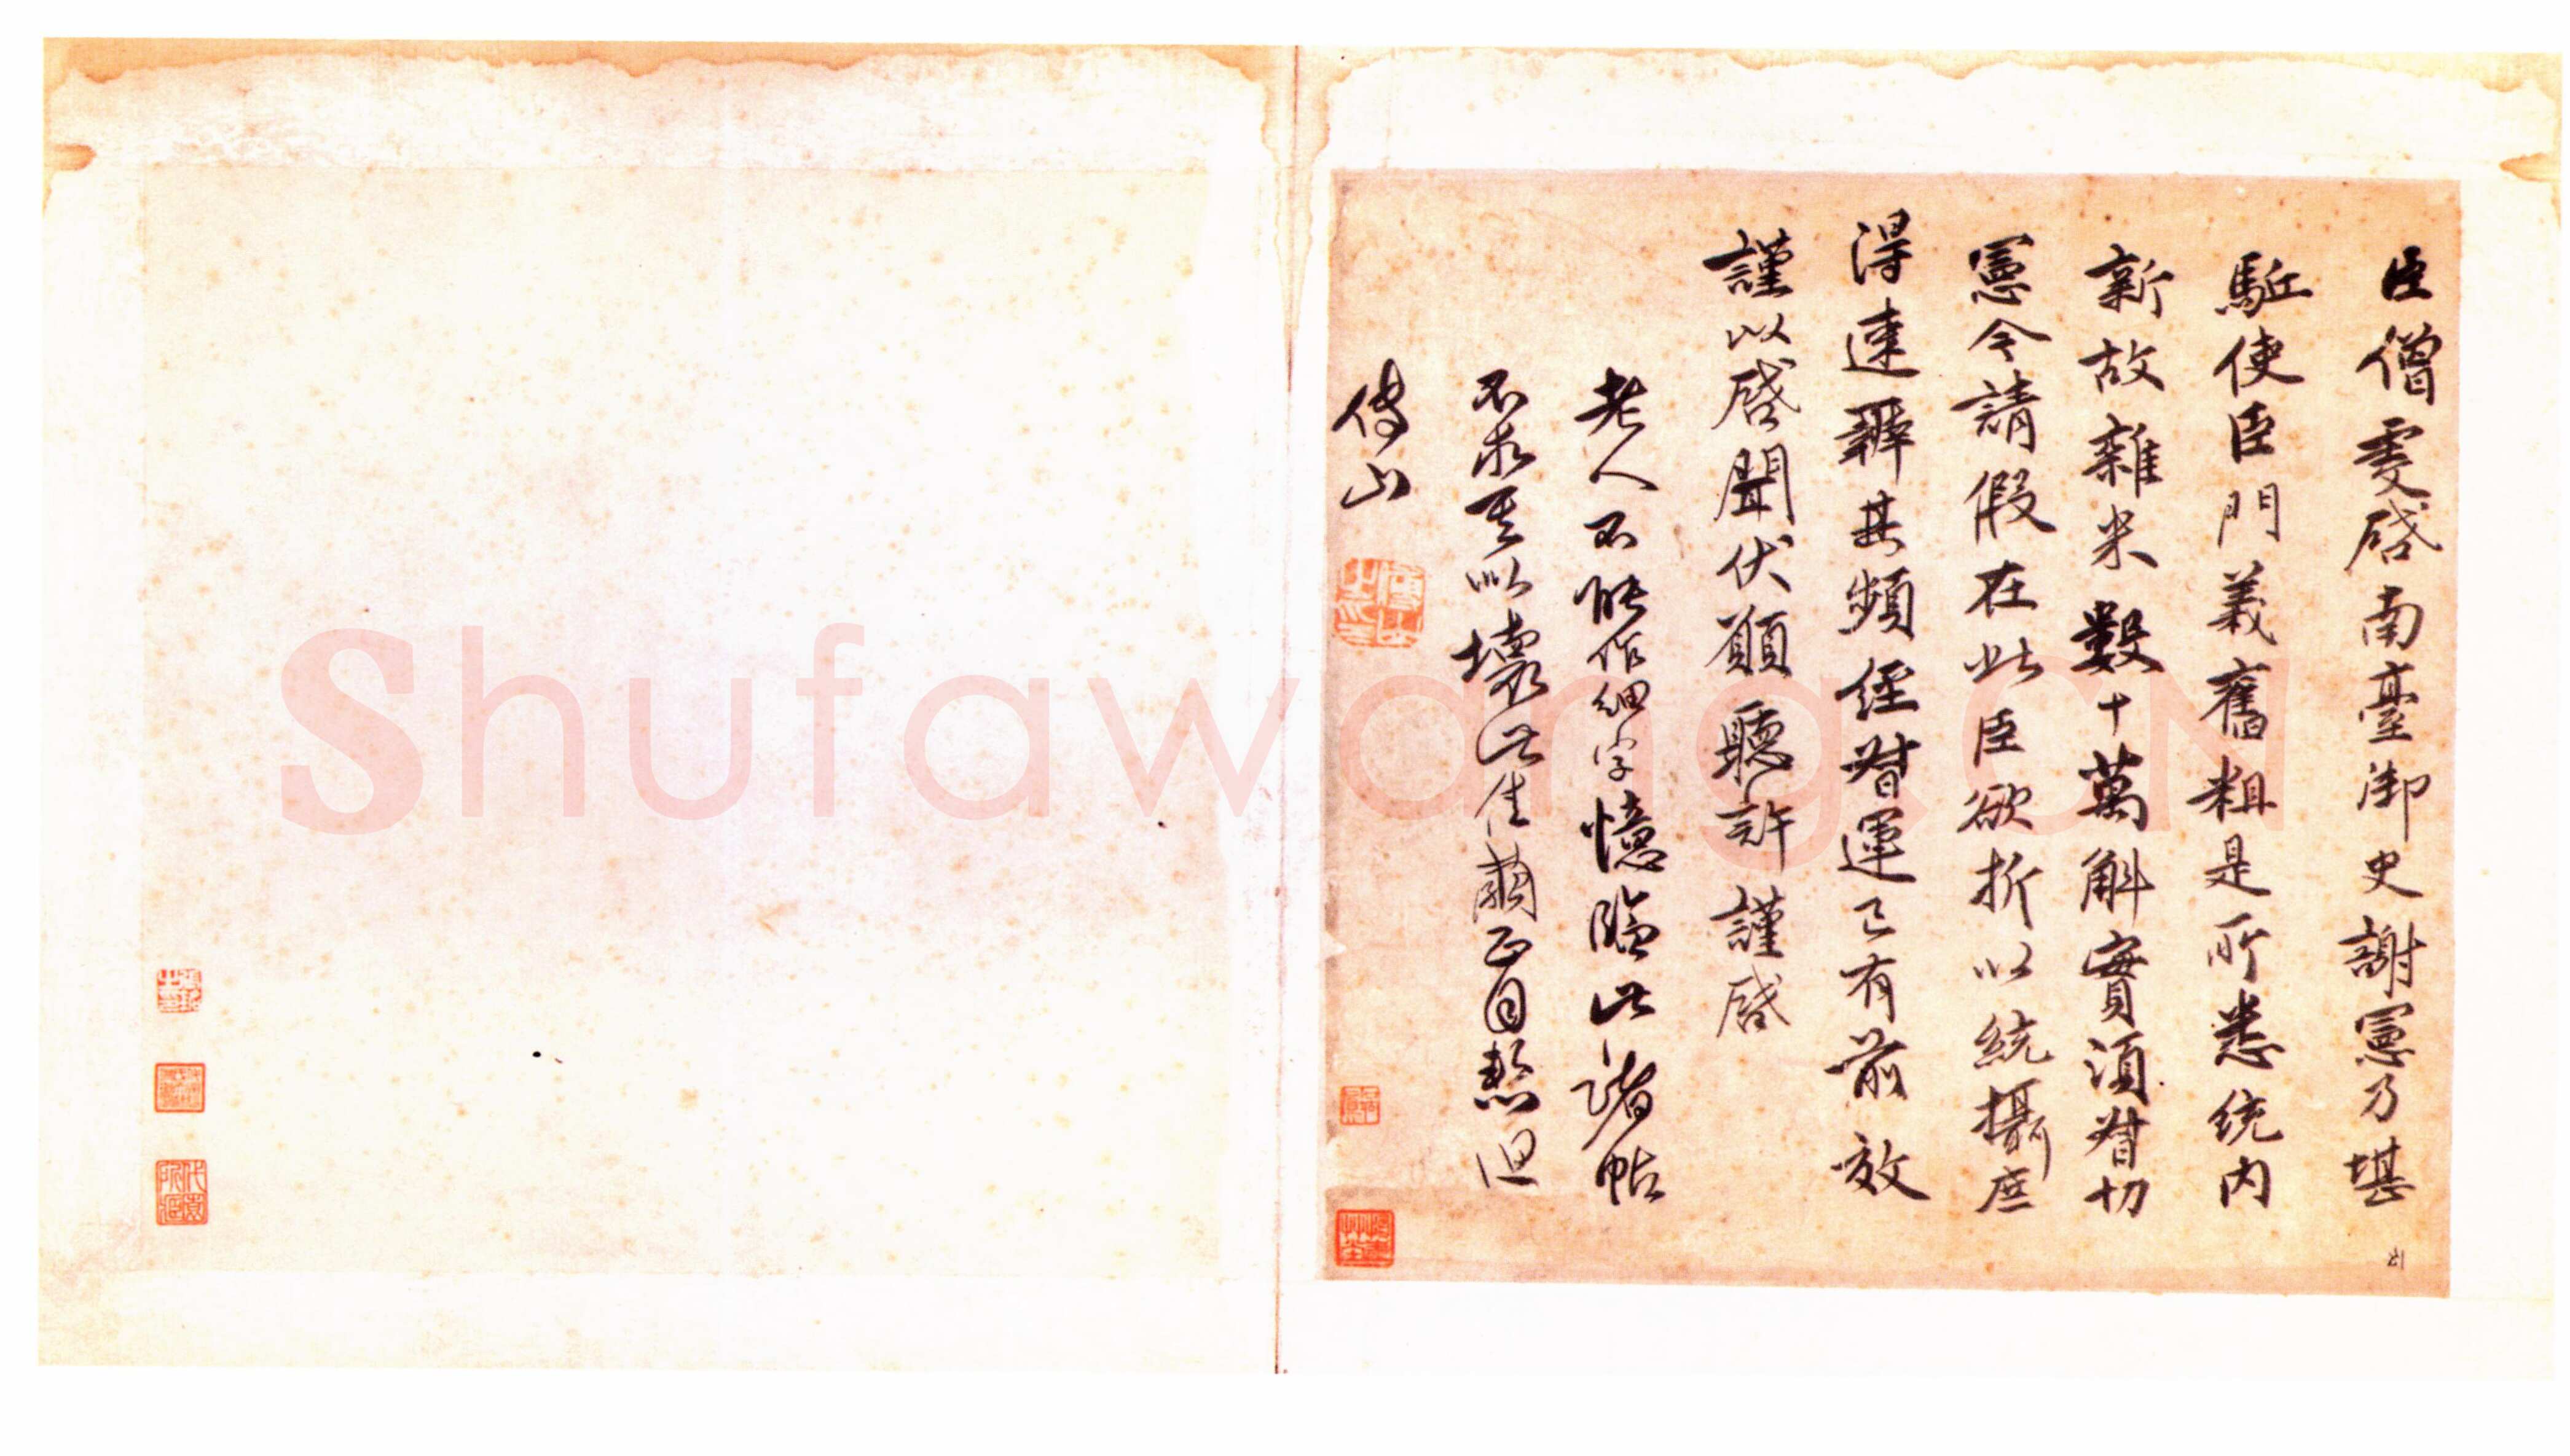 臣僧虔啓南臺御史謝憲乃堪
駈使臣門義舊粗是所悉統內
新故雜米數十萬斛實須督切
憲令請假在此臣欲折以統攝庶
得速辦其頻經督運已有前效
謹以啓聞伏願聽許謹啓
老人不能作細字憶臨此諸帖
不求至以壞此佳
傅山
傅山之印
Shufawang.CN